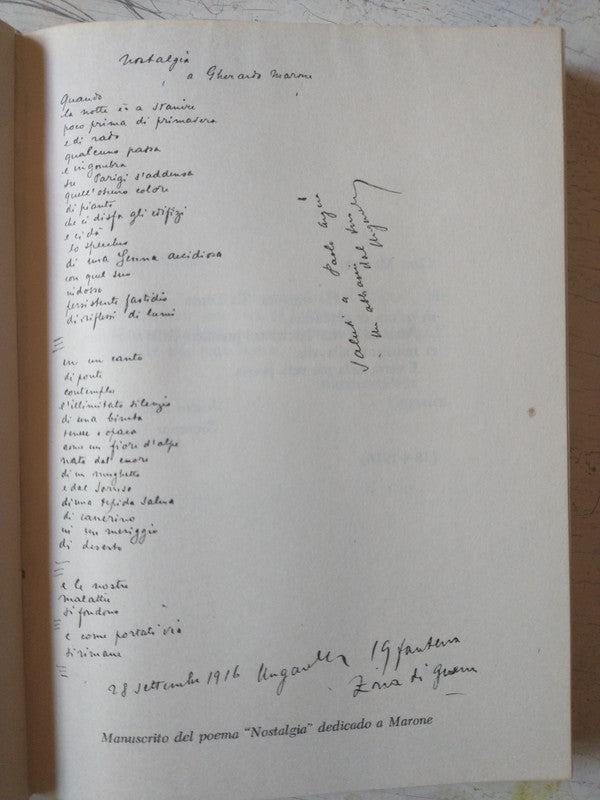 Nostalgia
a Gherardo Marone
Quando
la notte è a svanire
poco prima di primavera
e di rado
qualcuno passa
e ingombra
su Parigi s'addensa
quell'oscuro colore
di pianto
che ci disfa gli edifizi
e ci dà
lo specchio
di una Senna accidiosa
con quel suo
indosso
persistente fastidio
di riflessi di lumi
in un canto
di ponte
contemplo
l'illimitato silenzio
di una bimba
tenue e opaca
come un fiore d'alpe
nato dal cuore
di un mughetto
e dal sorriso
di una tepida salma
di canerino
in un meriggio
di deserto
e le nostre
malattie
si fondono
e come portati via
si rimane
28 settembre 1916 Ungaretti 19 fanteria
Zona di Guerra
Saluti a Paolo
un abbraccio dal
Manuscrito del poema "Nostalgia" dedicado a Marone